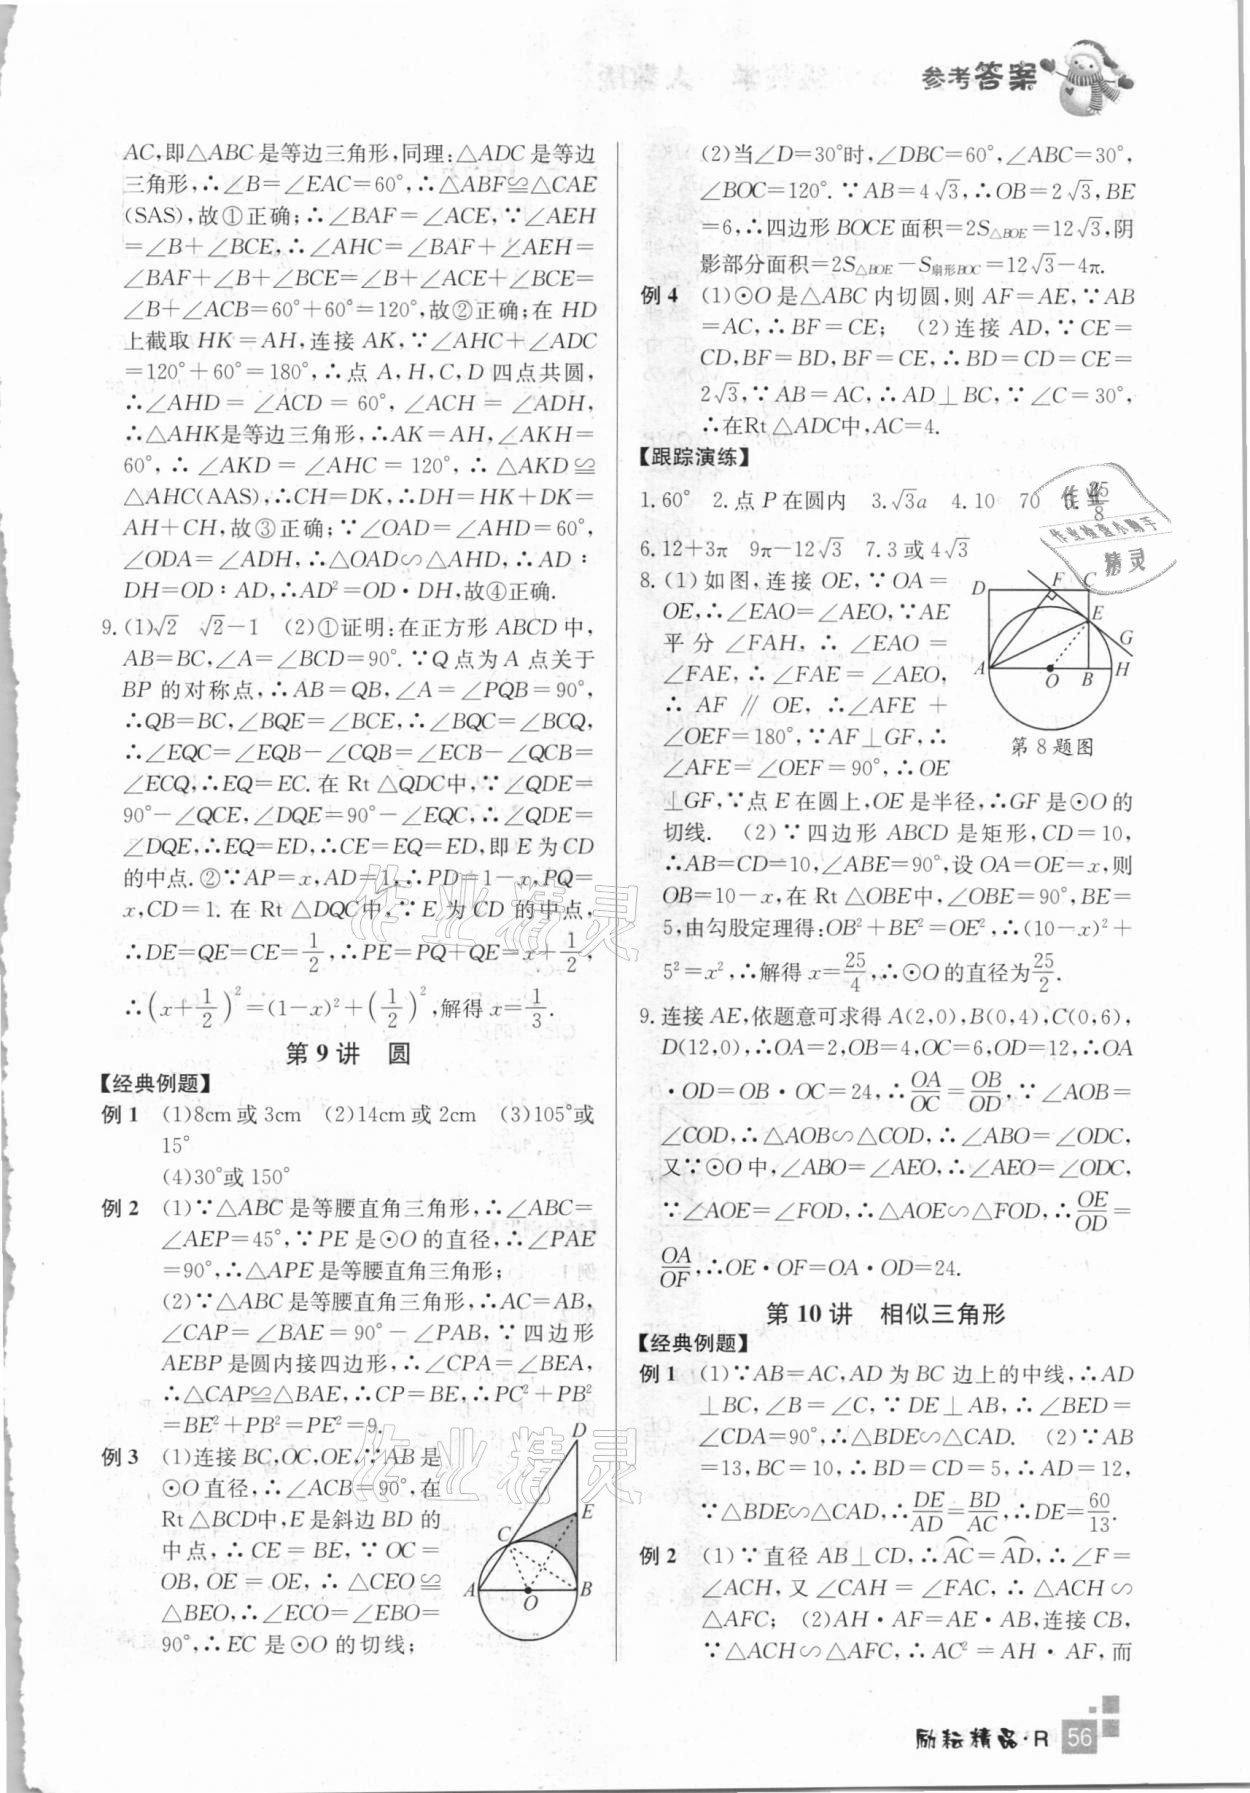 参考答案
AC,即△ABC是等边三角形,同理:△ADC是等边
三角形,∴∠B=∠EAC=60°,∴△ABF≌△CAE
(SAS),故①正确;∴∠BAF=∠ACE,∵∠AEH
=∠B+∠BCE,∴∠AHC=∠BAF+∠AEH=
∠BAF+∠B+∠BCE=∠B+∠ACE+∠BCE=
∠B+∠ACB=60°+60°=120°,故②正确;在 HD
上截取 HK=AH,连接 AK,∵∠AHC+∠ADC
=120°+60°=180°,∴点 A,H,C,D 四点共圆,
∴∠AHD=∠ACD=60°,∠ACH=∠ADH,
∴△AHK是等边三角形,∴AK=AH,∠AKH=
60°,∴∠AKD=∠AHC=120°,∴△AKD≌
△AHC(AAS),∴CH=DK,∴DH=HK+DK=
AH+CH,故③正确;∵∠OAD=∠AHD=60°,
∠ODA=∠ADH,∴△OAD∽△AHD,∴AD∶
DH=OD∶AD,∴AD²=OD·DH,故④正确.
9.(1)√2 √2-1 (2)①证明:在正方形 ABCD 中,
AB=BC,∠A=∠BCD=90°.∵Q点为A点关于
BP 的对称点,∴AB=QB,∠A=∠PQB=90°,
∴QB=BC,∠BQE=∠BCE,∴∠BQC=∠BCQ,
∴∠EQC=∠EQB-∠CQB=∠ECB-∠QCB=
∠ECQ,∴EQ=EC.在 Rt△QDC中,∵∠QDE=
90°-∠QCE,∠DQE=90°-∠EQC,∴∠QDE=
∠DQE,∴EQ=ED,∴CE=EQ=ED,即 E 为CD
的中点.②∵AP=x,AD=1,∴PD=1-x,PQ=
x,CD=1.在 Rt△DQC中,∵E 为 CD 的中点,
∴DE=QE=CE=1/2,∴PE=PQ+QE=x+1/2,
∴(x+1/2)²=(1-x)²+(1/2)²,解得 x=1/3.
第 9 讲 圆
【经典例题】
例 1 (1)8cm或 3cm (2)14cm或 2cm (3)105°或
15°
(4)30°或 150°
例 2 (1)∵△ABC 是等腰直角三角形,∴∠ABC=
∠AEP=45°,∵PE 是⊙O的直径,∴∠PAE
=90°,∴△APE是等腰直角三角形;
(2)∵△ABC是等腰直角三角形,∴AC=AB,
∠CAP=∠BAE=90°-∠PAB,∵四边形
AEBP 是圆内接四边形,∴∠CPA=∠BEA,
∴△CAP≌△BAE,∴CP=BE,∴PC²+PB²
=BE²+PB²=PE²=9.
例 3 (1)连接 BC,OC,OE,∵AB 是
⊙O直径,∴∠ACB=90°,在
Rt△BCD中,E是斜边 BD 的
中点,∴CE=BE,∵OC=
OB,OE=OE,∴△CEO≌
△BEO,∴∠ECO=∠EBO=
90°,∴EC 是⊙O的切线;
D
E
C
A
O
B
(2)当∠D=30°时,∠DBC=60°,∠ABC=30°,
∠BOC=120°.∵AB=4√3,∴OB=2√3,BE
=6,∴四边形 BOCE 面积=2S△BOE=12√3,阴
影部分面积=2S△BOE-S扇形BOC=12√3-4π.
例 4 (1)⊙O 是△ABC 内切圆,则 AF=AE,∵AB
=AC,∴BF=CE; (2)连接 AD,∵CE=
CD,BF=BD,BF=CE,∴BD=CD=CE=
2√3,∵AB=AC,∴AD⊥BC,∵∠C=30°,
∴在Rt△ADC中,AC=4.
【跟踪演练】
1.60° 2.点 P 在圆内 3.√3a 4.10 70 25/8
6.12+3π 9π-12√3 7.3 或 4√3
8.(1)如图,连接 OE,∵OA=
OE,∴∠EAO=∠AEO,∵AE
平分∠FAH,∴∠EAO=
∠FAE,∴∠FAE=∠AEO,
∴AF∥OE,∴∠AFE+
∠OEF=180°,∵AF⊥GF,∴
∠AFE=∠OEF=90°,∴OE
⊥GF,∵点 E 在圆上,OE是半径,∴GF 是⊙O的
切线. (2)∵四边形 ABCD 是矩形,CD=10,
∴AB=CD=10,∠ABE=90°,设OA=OE=x,则
OB=10-x,在 Rt△OBE中,∠OBE=90°,BE=
5,由勾股定理得:OB²+BE²=OE²,∴(10-x)²+
5²=x²,∴解得 x=25/4,∴⊙O的直径为25/2.
D F C
E
G
A O B H
第 8 题图
9.连接 AE,依题意可求得 A(2,0),B(0,4),C(0,6),
D(12,0),∴OA=2,OB=4,OC=6,OD=12,∴OA
·OD=OB·OC=24,∴OA/OC=OB/OD,∵∠AOB=
∠COD,∴△AOB∽△COD,∴∠ABO=∠ODC,
又∵⊙O中,∠ABO=∠AEO,∴∠AEO=∠ODC,
∵∠AOE=∠FOD,∴△AOE∽△FOD,∴OE/OD=
OA/OF,∴OE·OF=OA·OD=24.
第 10 讲 相似三角形
【经典例题】
例 1 (1)∵AB=AC,AD 为 BC 边上的中线,∴AD
⊥BC,∠B=∠C,∵DE⊥AB,∴∠BED=
∠CDA=90°,∴△BDE∽△CAD. (2)∵AB
=13,BC=10,∴BD=CD=5,∴AD=12,
∵△BDE∽△CAD,∴DE/AD=BD/AC,∴DE=60/13.
例 2 (1)∵直径 AB⊥CD,∴AC⌒=AD⌒,∴∠F=
∠ACH,又∠CAH=∠FAC,∴△ACH∽
△AFC; (2)AH·AF=AE·AB,连接 CB,
∵△ACH∽△AFC,∴AC²=AH·AF,而
励耘精品·R 56
作业精灵
作业检查小助手
作业精灵
作业精灵